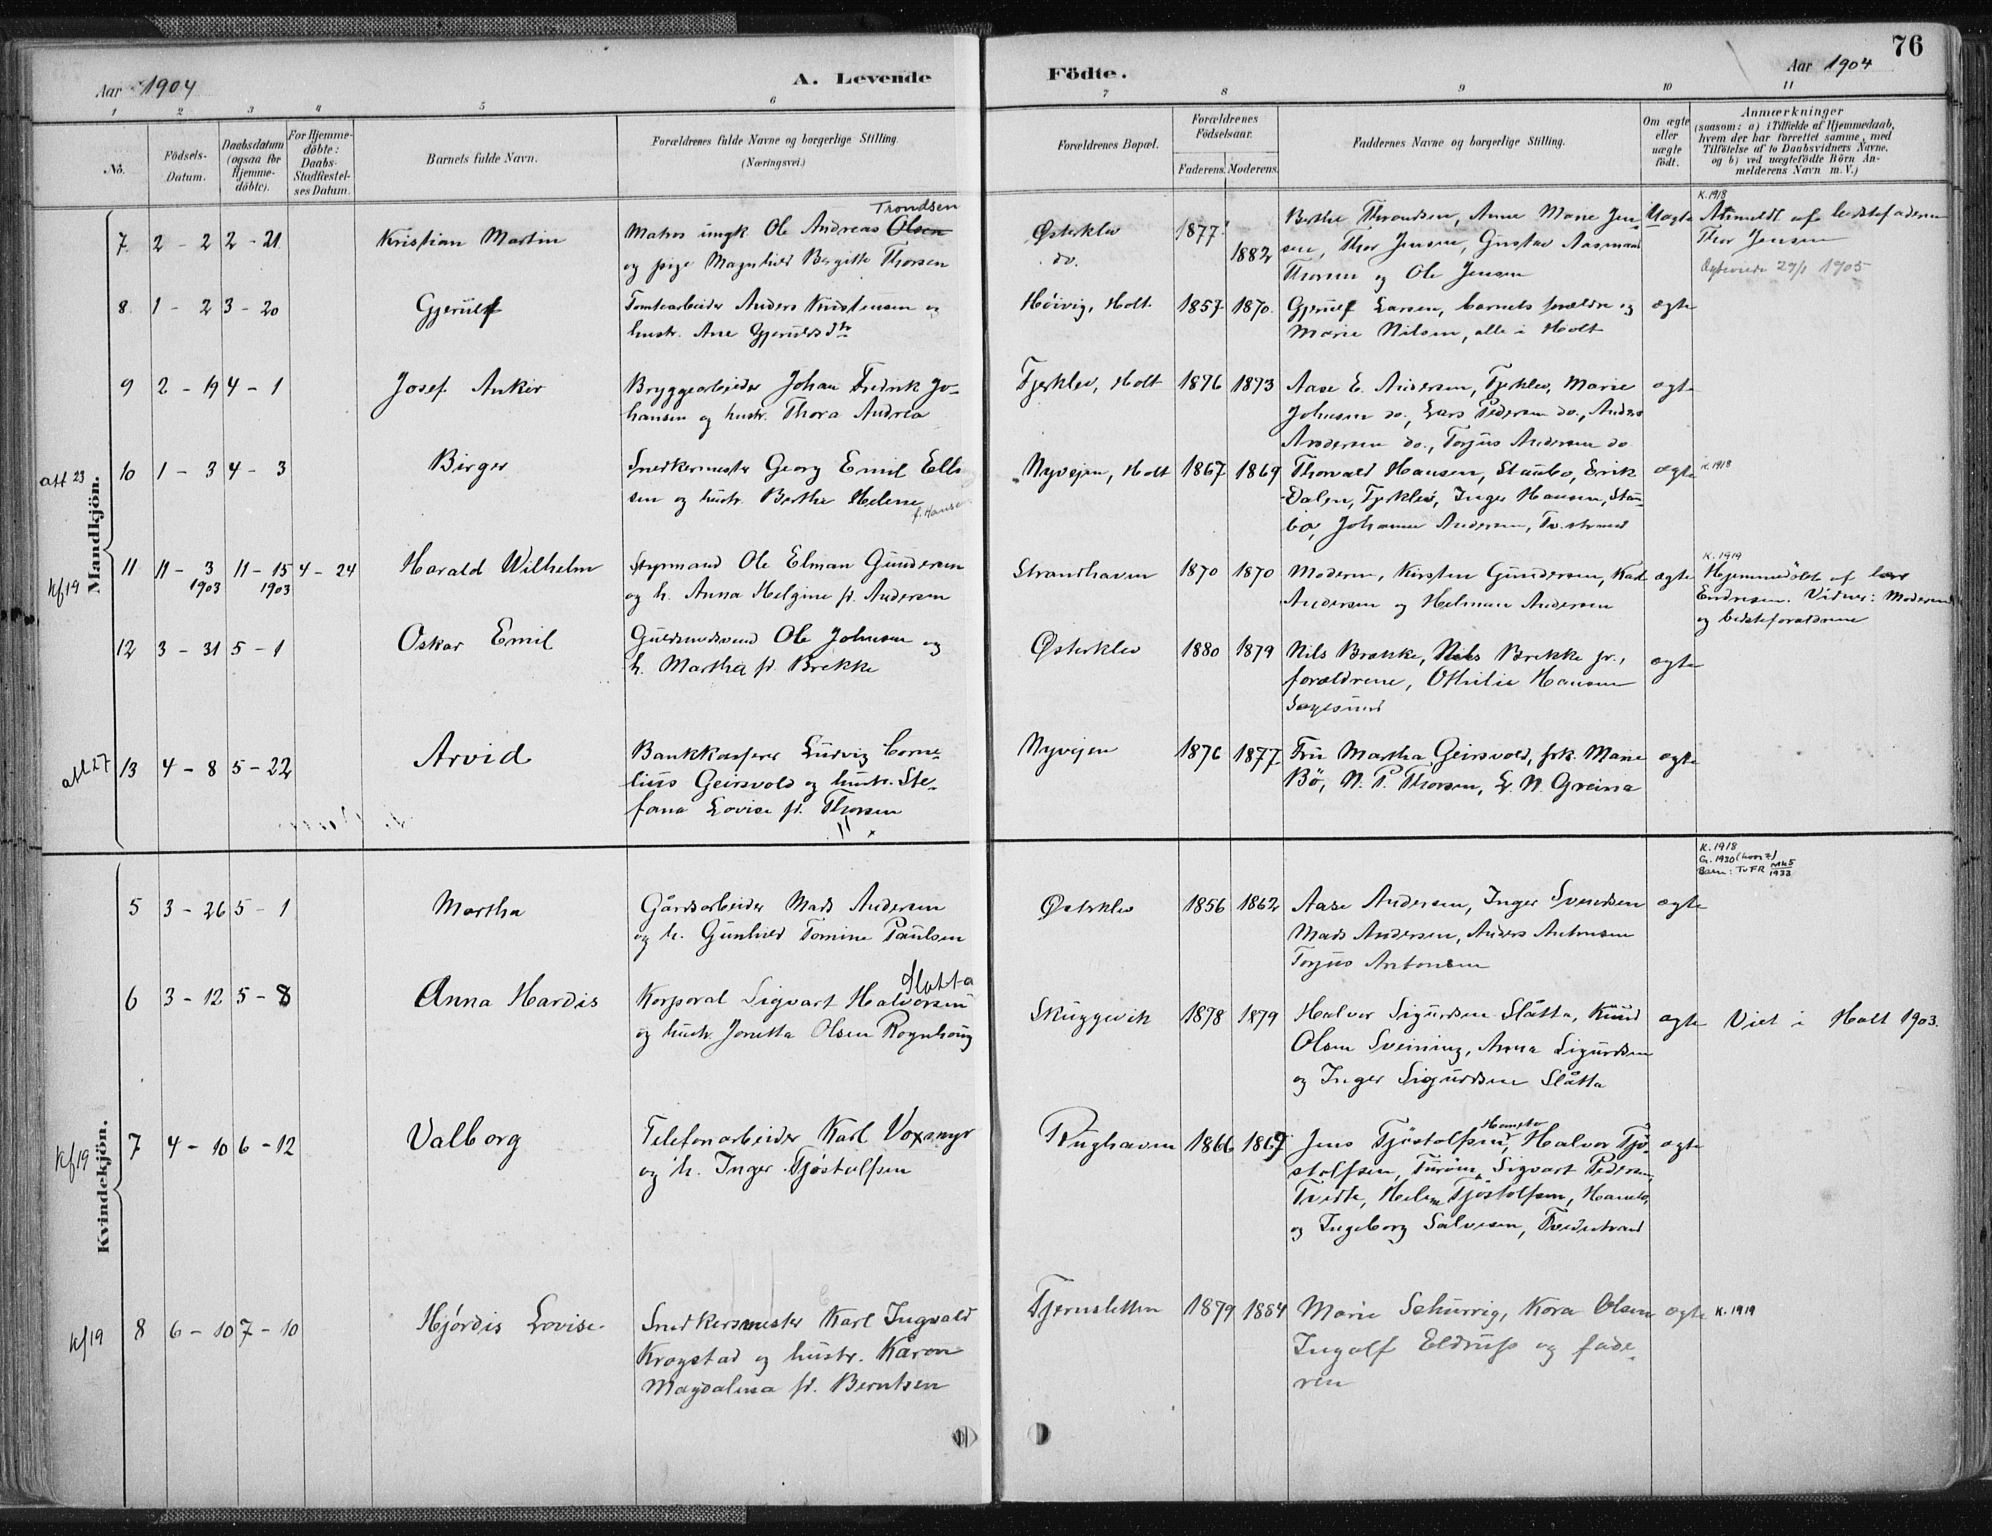 76
Aar 1904
A. Levende Födte.
Aar 1904
1 2 3 4 5 6 7 8 9 10 11
No.
Födsels-
Datum.
Daabsdatum
(ogsaa for
Hjemme-
döbte).
For Hjemme-
döbte:
Daabs-
Stadfæstel-
ses Datum.
Barnets fulde Navn.
Forældrenes fulde Navne og borgerlige Stilling.
(Næringsvei.)
Forældrenes Bopæl.
Forældrenes
Födselsaar.
Faderens. Moderens.
Faddernes Navne og borgerlige Stilling.
Om ægte
eller
uægte
födt.
Anmærkninger
(saasom: a) i Tilfælde af Hjemmedaab,
hvem der har forrettet samme, med
Tilföielse af to Daabsvidners Navne,
og b) ved uægtefödte Börn An-
melderens Navn m. V.)
Mandkjön.
7 2 - 2 2 - 21 Kristian Martin
Trondsen
Matros ungk Ole Andreas Olsen
og pige Magnhild Bergitte Thorsen
Østerklev
do.
1877
1882
Berthe Throndsen, Anne Marie Jen-
sen, Thor Jensen, Gustav Aasmund
Thorsen og Ole Jensen
Uægte
K. 1918
Anmeldt af bedstefaderen
Thor Jensen
Ægteviede 29/1 1905
8 1 - 2 3 - 20 Gjerulf
Tomtearbeider Anders Kristensen og
hustr. Ane Gjerulfsdtr
Höivig, Holt 1857 1870
Gjerulf Larsen, barnets forældre og
Marie Nilsen, alle i Holt
ægte
9 2 - 19 4 - 1 Josef Anker
Bryggearbeider Johan Fredrik Jo-
hansen og hustr. Thora Andrea
Tjerklev, Holt 1876 1873
Aase E. Andersen, Tjerklev, Marie
Johnsen do., Lars Pedersen do., Anders
Andersen do., Torjus Andersen do
ægte
att 23
10 1 - 3 4 - 3 Birger
Snedkermester Georg Emil Ell-
sen og hustr. Berthe Helene
f. Hansen
Nyvejen, Holt 1867 1869
Thorvald Hansen, Staubo, Erik
Dalen, Tjerklev, Inger Hansen, Stau-
bo, Johanne Andersen, Tv.strand
ægte
K. 1918
kf 19
11 11 - 3 1903 11 - 15 1903 4 - 24 Harald Wilhelm
Styrmand Ole Elman Gundersen
og h. Anna Helgine f. Andersen
Strandhaven 1870 1870
Moderen, Kirsten Gundersen, Karl
Andersen og Helman Andersen
ægte
K. 1919
Hjemmedöbt af
Endresen. Vidner: Moderen
og bedsteforældrene
12 3 - 31 5 - 1 Oskar Emil
Guldsmedsvend Ole Johnsen og
h. Martha f. Brekke
Østerklev 1880 1879
Nils Brekke, Nils Brekke jr.,
forældrene, Othilie Hansen
Sagesund
ægte
att 27
13 4 - 8 5 - 22 Arvid
Bankkasserer Ludvig Corne-
lius Geirsvold og hustr. Ste-
fana Lovise f. Thorsen
Nyvejen 1876 1877
Fru Martha Geirsvold, frk. Marie
Bö, N. P. Thorsen, L. N. Greina
ægte
Kvindekjön.
5 3 - 26 5 - 1 Martha
Gårdsarbeider Mads Andersen
og h. Gunhild Tomine Paulsen
Østerklev 1856 1862
Aase Andersen, Inger Svendsen
Mads Andersen, Anders Antonsen
Torjus Antonsen
ægte
K. 1918
G. 1930
Barn: TvFR 1933
6 3 - 12 5 - 8 Anna Hardis
Slatta
Korporal Sigvart Halvorsen
og hustr. Jonetta Olsen Rognhoug
Skuggevik 1878 1879
Halvor Sigurdsen Slåtta, Knud
Olsen Sveining, Anna Sigurdsen
og Inger Sigurdsen Slåtta
ægte Viet i Holt 1903.
kf 19
7 4 - 10 6 - 12 Valborg
Telefonarbeider Karl Voxmyr
og h. Inger Tjöstolfsen
Rughaven 1866 1869
Jens Tjöstolfsen, Halvor Tjö-
stolfsen, Sigvart Pedersen
Tvedte, Helene Tjöstolfsen,
og Ingeborg Salvesen, Tvedestrand
ægte
kf 19
8 6 - 10 7 - 10 Hjördis Lovise
Snedkersmester Karl Ingvald
Krogstad og hustr. Karen
Magdalena f. Berntsen
Tjernsletten 1879 1884
Marie Schurrig, Kora Olsen
Ingolf Eldrup og fade-
ren
ægte K. 1919